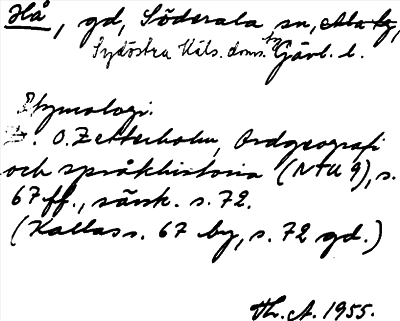 Hå, gd, Söderala sn, Ala tg,
Sydöstra Häls. doms. tg Gävl. l.
Etymologi:
D. O. Zetterholm, Ordgeografi
och språkhistoria (NTU 9), s.
67 ff., särsk. s. 72.
(Kallas s. 67 by, s. 72 gd.)
Th. A. 1955.